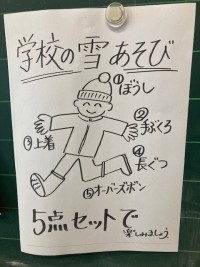 学校の雪あそび
①ぼうし
②手ぶくろ
③上着
④長ぐつ
⑤オーバーズボン
5点セットで
楽しみましょう